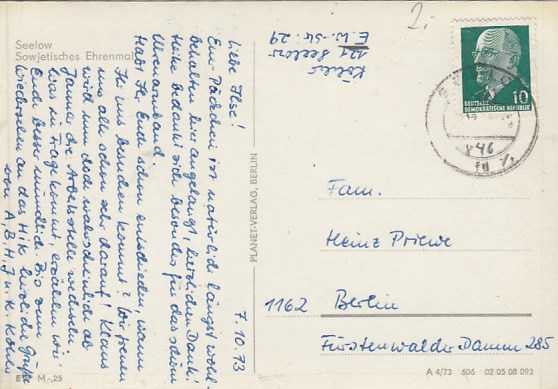 2,-
Seelow
Sowjetisches Ehrenmal
7.10.73
Liebe Ilse!
Euer Päckchen ist natürlich längst wohl-
behalten hier angelangt, herzlichen Dank!
Heike bedankt sich besonders für das schöne
Uhrenarmband.
Habt Ihr Euch schon entschieden, wann
Ihr uns besuchen kommt? Wir freuen
uns alle schon sehr darauf! Klaus
wird nun doch wahrscheinlich ab
Januar die Arbeitsstelle wechseln.
Was in Frage kommt, erzählen wir
Euch lieber mündlich. Bis zum
Wiedersehen an das Hik herzliche Grüße
von A, B, H, J u. K. Köhns
EVP M -,25
PLANET-VERLAG, BERLIN
121 Seelow
E.-W.-Str. 29
10
DEUTSCHE
DEMOKRATISCHE REPUBLIK
Fam.
Heinz Priewe
1162 Berlin
Fürstenwalder Damm 285
A 4/73 606 02 05 08 093